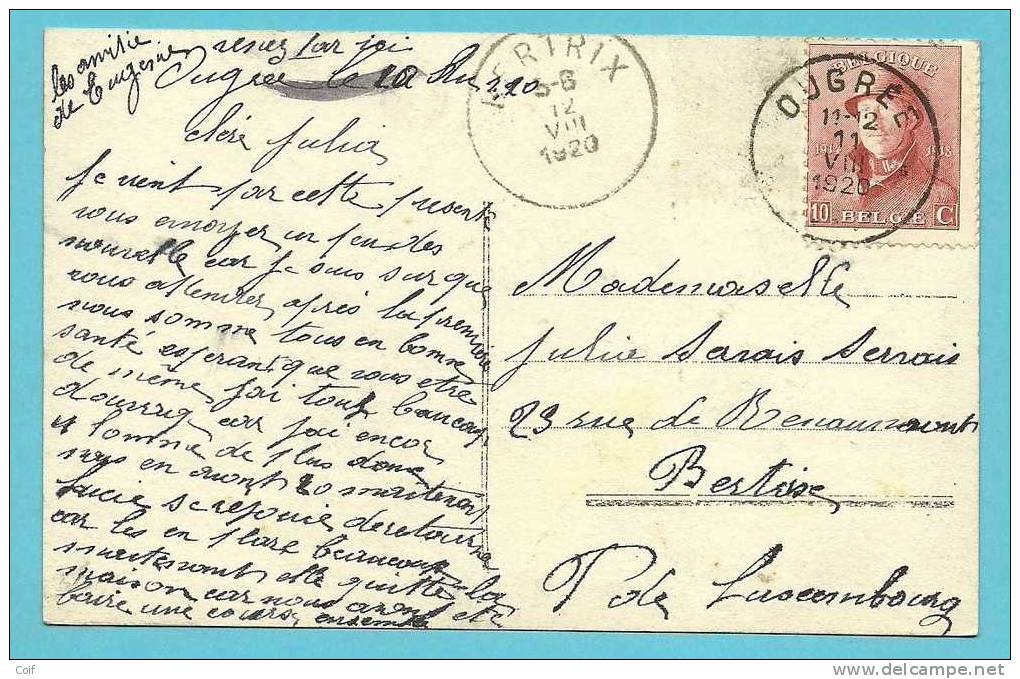 les amitié
de Eugénie
Ougrée le 10 
chère Julia
Je vient par cette present
vous envoyer un peu des
nouvelle car je suis sur que
vous attender après la premier
nous somme tous en bonne
santé esperant que vous etre
de même jai tout beaucoup
douvrag car jai encor
4 homme de plus donc
nous en avont 20 maintenant
Lucie se rejouie de retourne
car les en place beaucoup
maintenant elle quitte la
maison car nous avont été
faire une course ensemble
BERTRIX
5-6
12
VIII
1920
BELGIQUE
1914 1918
10 BELGIE C
OUGRÉE
11-12
11
VIII
1920
Mademoiselle
Julie Servais
23 rue de Renaumont
Bertrix
P de Luxembourg
Coif
www.delcampe.net